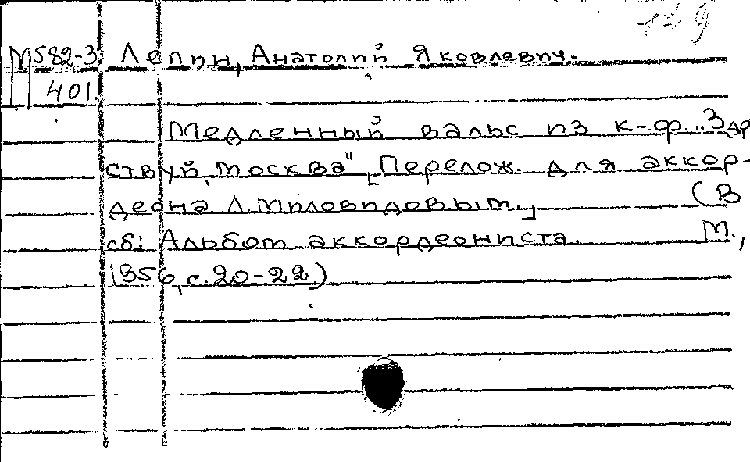 129
М582-3 Лепин, Анатолий Яковлевич.
401.
Медленный вальс из к-ф. „Здр
ствуй, Москва" [Перелож. для аккор-
деона Л. Миловидовым.] (В
сб: Альбом аккордеониста М.,
1956, с. 20-22)